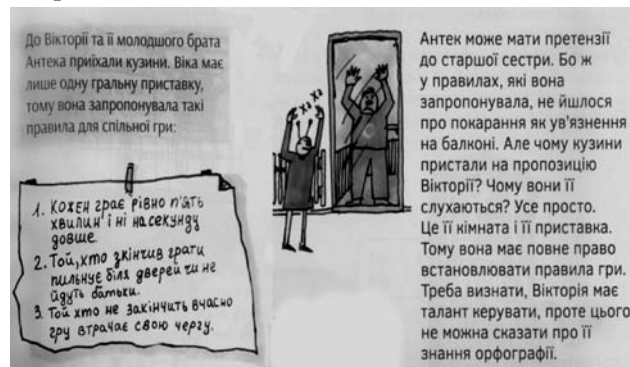 До Вікторії та її молодшого брата
Антека приїхали кузини. Віка має
лише одну гральну приставку,
тому вона запропонувала такі
правила для спільної гри:
1. Кожен грає рівно п'ять
хвилин і ні на секунду
довше.
2. Той, хто зкінчив грати
пильнує біля дверей чи не
йдуть батьки.
3. Той хто не закінчить вчасно
гру втрачає свою чергу.
Ха Ха
Антек може мати претензії
до старшої сестри. Бо ж
у правилах, які вона
запропонувала, не йшлося
про покарання як ув'язнення
на балконі. Але чому кузини
пристали на пропозицію
Вікторії? Чому вони її
слухаються? Усе просто.
Це її кімната і її приставка.
Тому вона має повне право
встановлювати правила гри.
Треба визнати, Вікторія має
талант керувати, проте цього
не можна сказати про її
знання орфографії.